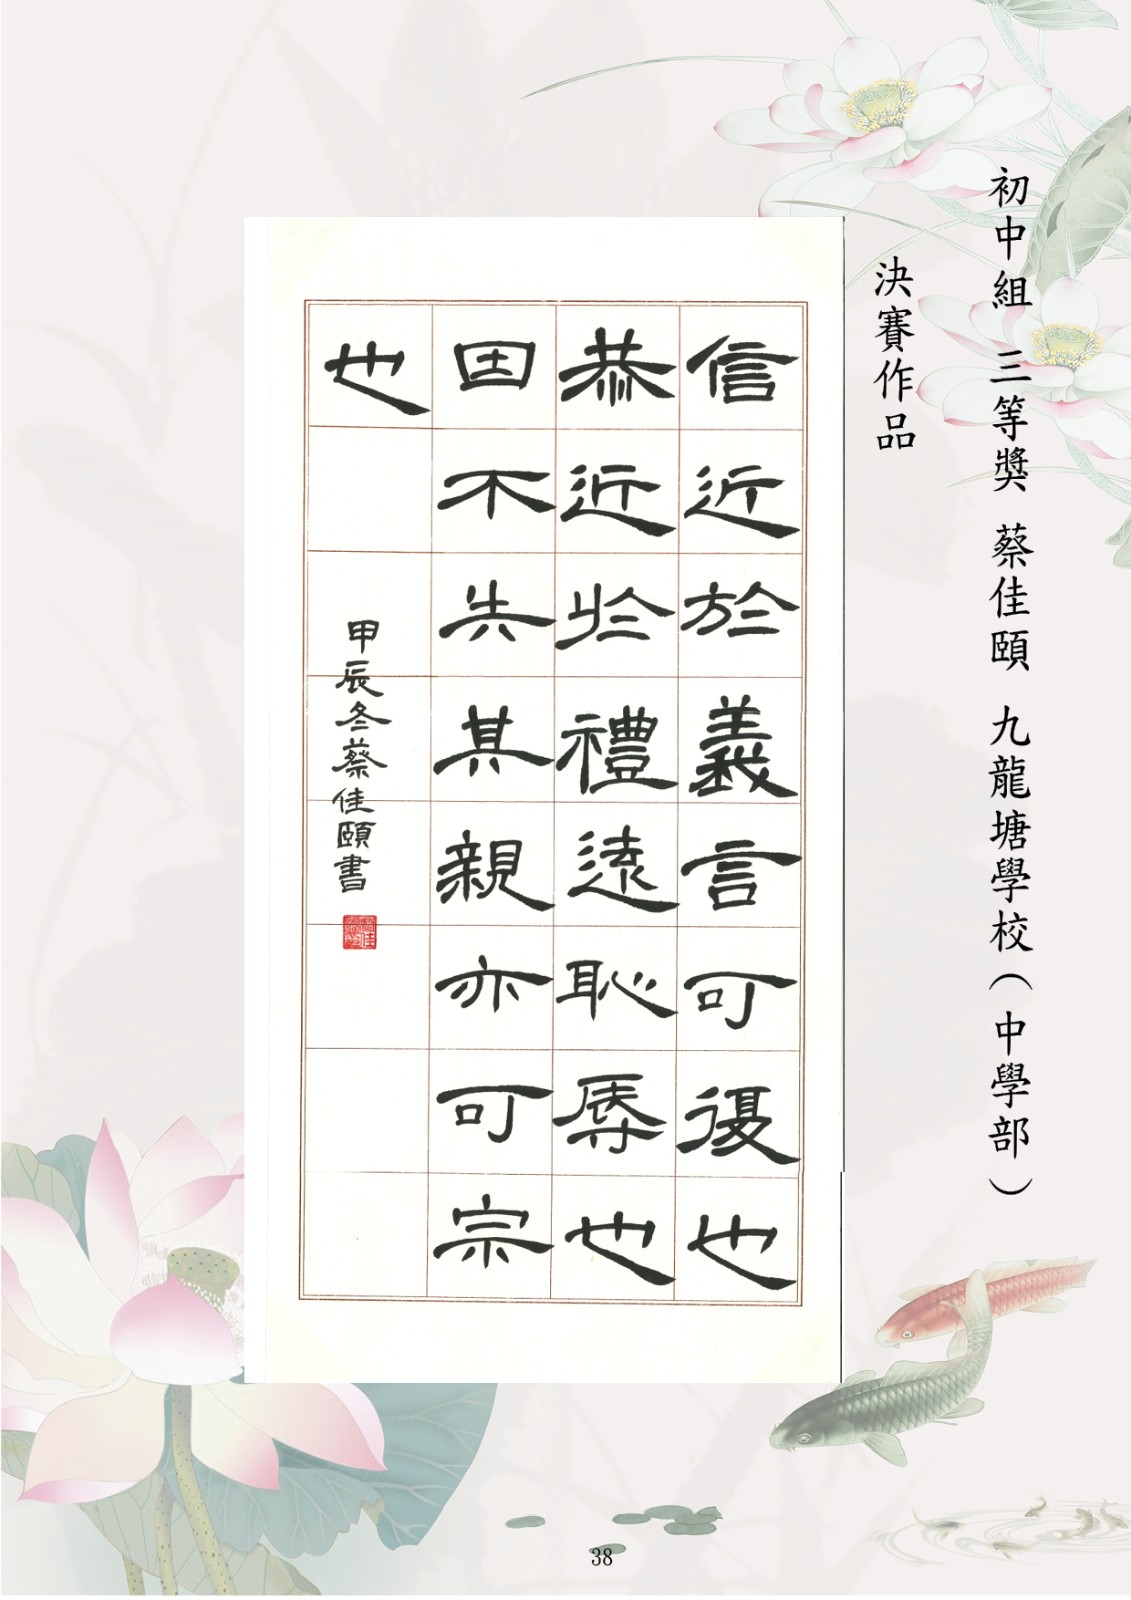 初中組 三等獎 蔡佳頤 九龍塘學校(中學部)
決賽作品
信近於義言可復也
恭近於禮遠恥辱也
因不失其親亦可宗
也
甲辰冬蔡佳頤書
38